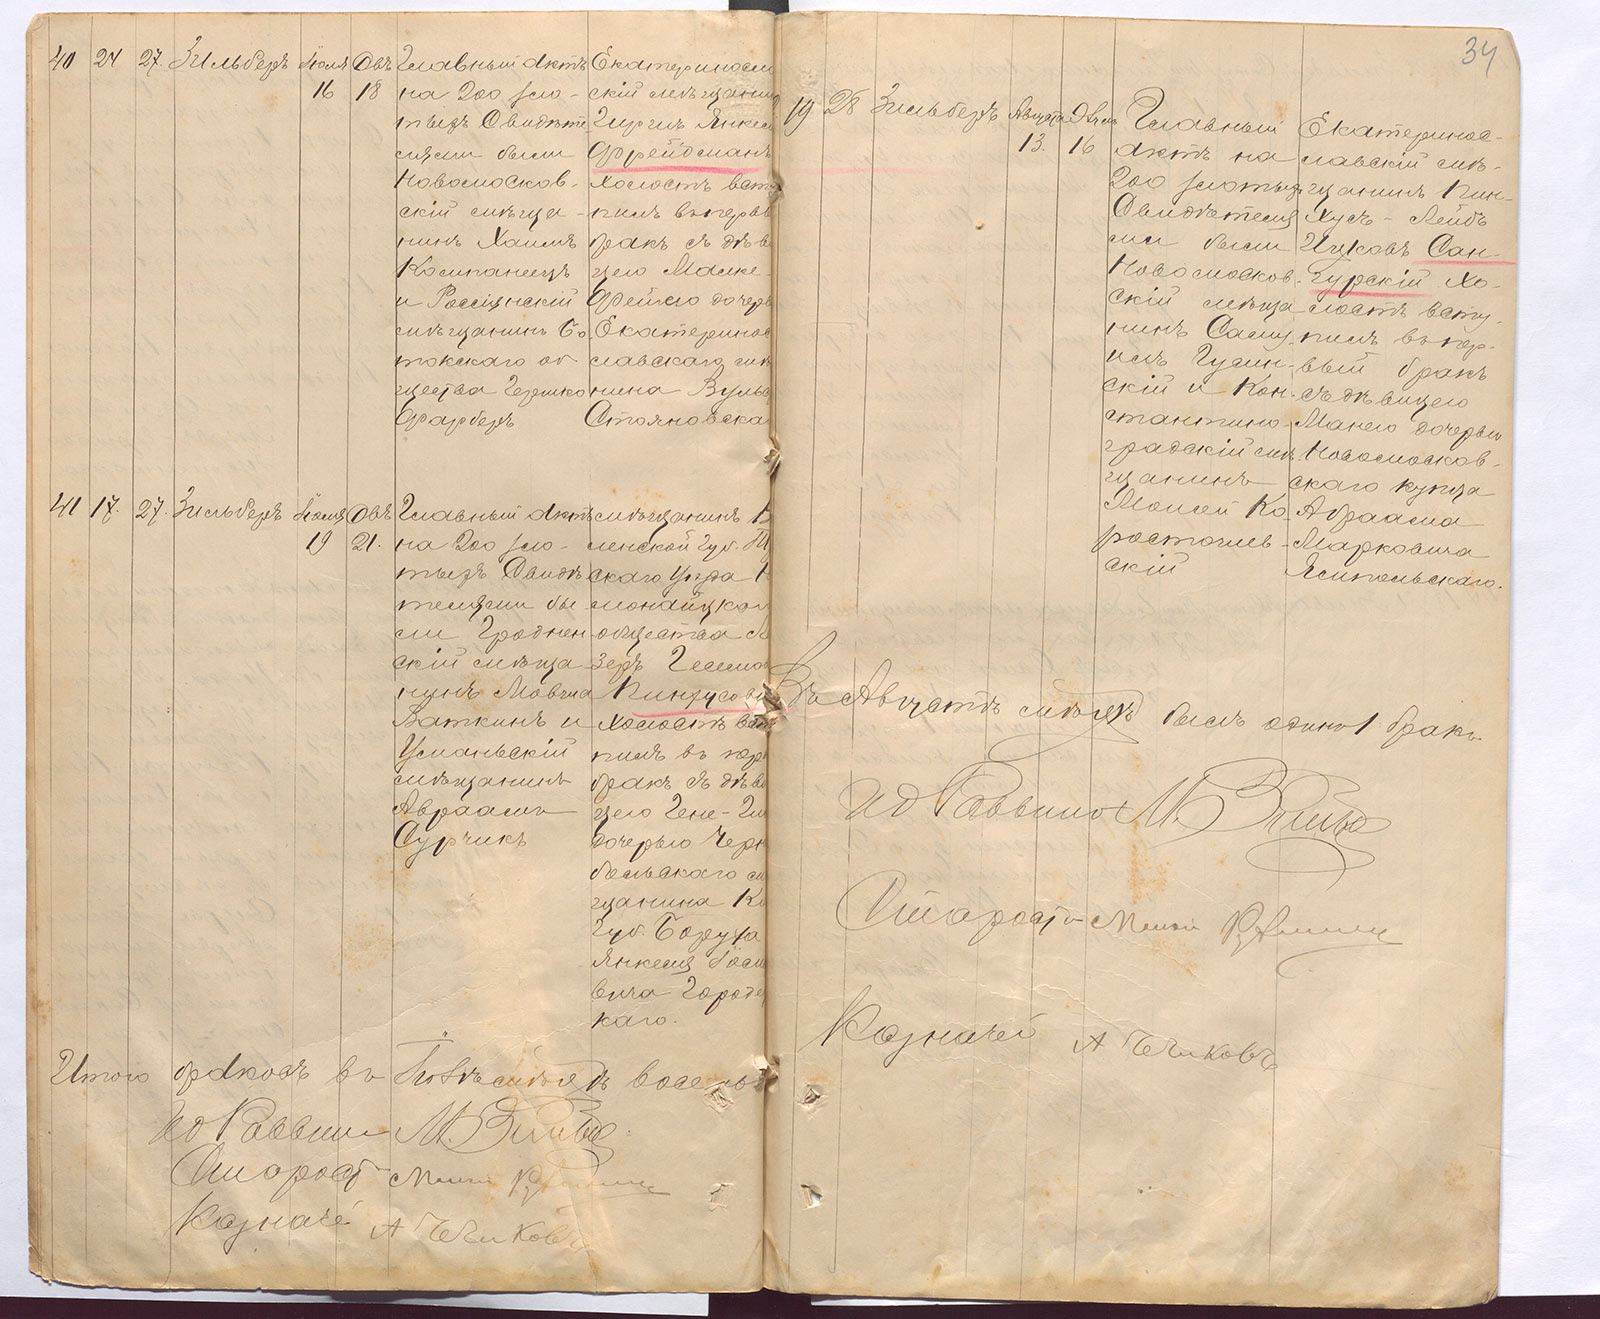 40 24 27 Зильберъ Іюля 16 Овъ 18
Главный Актъ
на 200 зло-
тыхъ Свидѣте
лями были
Новомосков-
скій мѣща-
нинъ Хаимъ
Компанеецъ
и Россіянскій
мѣщанинъ Бо
токскаго об
щества Гершко
Фарберъ
Екатериносл
скій мѣщанин
Гирша Янкел
Фрейдманъ
холостъ всту
пилъ въ первы
бракъ съ дѣв
цею Малке-
Фейгою дочерь
Екатеринос
лавскаго мѣ
нина Вульф
Стояновска
41 17. 27. Зильберъ Іюля 19 Овъ 21.
Главный Актъ
на 200 зло-
тыхъ Свидѣ
телями бы
ли Гроднен
скій мѣща
нинъ Мовша
Ваткинъ и
Усманьскій
мѣщанинъ
Авраамъ
Сурчикъ
мѣщанинъ
ленской Губ.
скаго Уѣзда
общества
зеръ
Пинзусов
холостъ вст
пилъ въ пер
бракъ съ дѣв
цею Гене-Ги
дочерью Черн
бельскаго м
щанина К
Губ. Боруха
Янкеля Іос
вича Городе
каго.
Итого браковъ въ Іюлѣ мѣсяцѣ восемь
ИД Раввина М. Зильб
Староста
Казначей А Чечиковъ
34
19 28 Зильберъ Августа 13. Элулъ 16
Главный
Актъ на
200 злотыхъ
Свидѣтеля
ми были
Новомосков-
скій мѣща
нинъ Саму
илъ Гусин-
скій и Кон-
стантино-
градскій мѣ
щанинъ
Моисей Ко
ростошев-
скій
Екатеринос-
лавскій мѣ-
щанинъ Пин-
хусъ-Лейбъ
Ицковъ Сан-
гурскій Хо-
лостъ всту-
пилъ въ пер-
вый бракъ
съ дѣвицею
Манею дочерью
Новомосков-
скаго купца
Абраама
Марковича
Ямпольскаго.
Въ Августѣ мѣсяцѣ былъ одинъ 1 бракъ.
ИД Раввина М. Зильб
Староста
Казначей А Чечиковъ